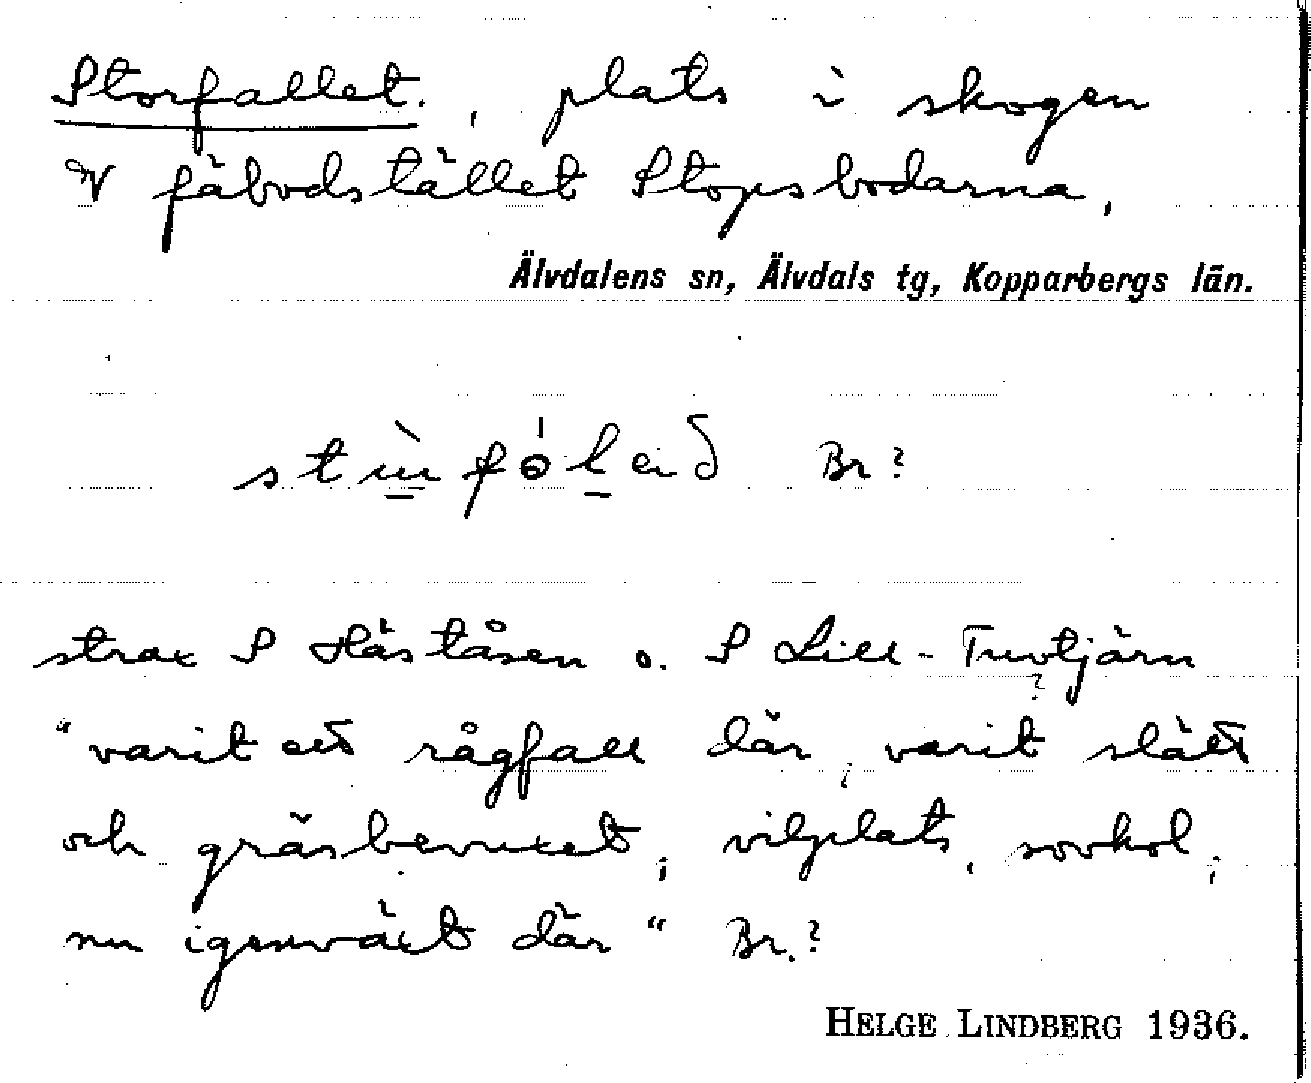 Storfallet, plats i skogen
V fäbodstället Stopsbodarna,
Älvdalens sn, Älvdals tg, Kopparbergs län.
Br?
strax S Häståsen o. S Lill-Tuvtjärn
?
"varit ett rågfall där, varit slätt
och gräsbevuxet; vilplats, sovkol;
nu igenväxt där" Br.?
HELGE LINDBERG 1936.